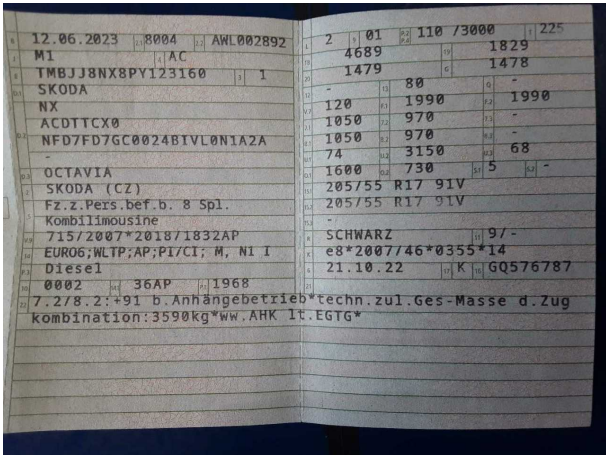 12.06.2023 8004 AWL002892
M1 AC
TMBJJ8NX8PY123160 1
SKODA
NX
ACDTTCX0
NFD7FD7GC0024BIVL0N1A2A
-
OCTAVIA
SKODA (CZ)
Fz.z.Pers.bef.b. 8 Spl.
Kombilimousine
715/2007*2018/1832AP
EURO6;WLTP;AP;PI/CI; M, N1 I
Diesel
0002 36AP 1968
2 01 110 /3000 225
4689 1829
1479 1478
- 80 -
120 1990 1990
1050 970 -
1050 970 -
74 3150 68
1600 730 5 -
205/55 R17 91V
205/55 R17 91V
-
SCHWARZ 9/-
e8*2007/46*0355*14
21.10.22 K GQ576787
7.2/8.2:+91 b.Anhängebetrieb*techn.zul.Ges-Masse d.Zug
kombination:3590kg*ww.AHK lt.EGTG*